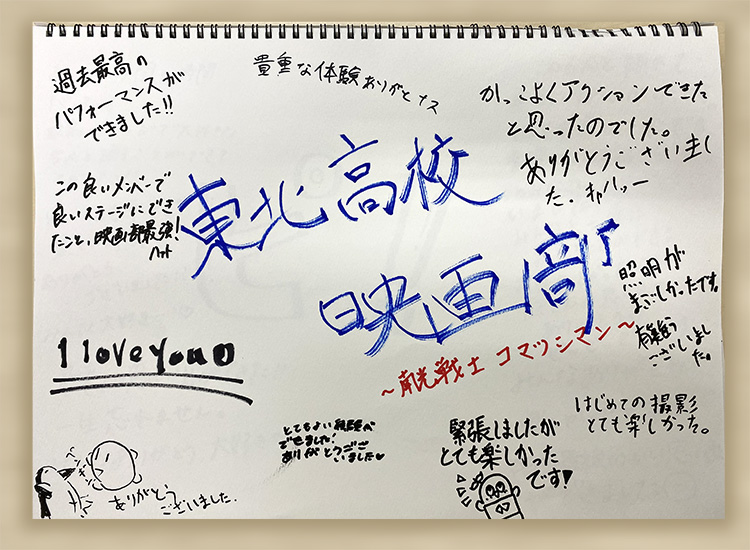 過去最高の
パフォーマンスが
できました!!
貴重な体験ありがとナス
かっこよくアクションできた
と思ったのでした。
ありがとうございまし
た.
この良いメンバーで
良いステージにでき
たこと、映画部最強!
東北高校
映画部
照明が
まぶしかったです。
ございました。
1 love you
~ 戦士 コマツシマン~
はじめての撮影
とても楽しかった。
とてもよい経験が
できました!
ありがとうござ
いました
緊張しましたが
とても楽しかった
です
ありがとう
ございました.